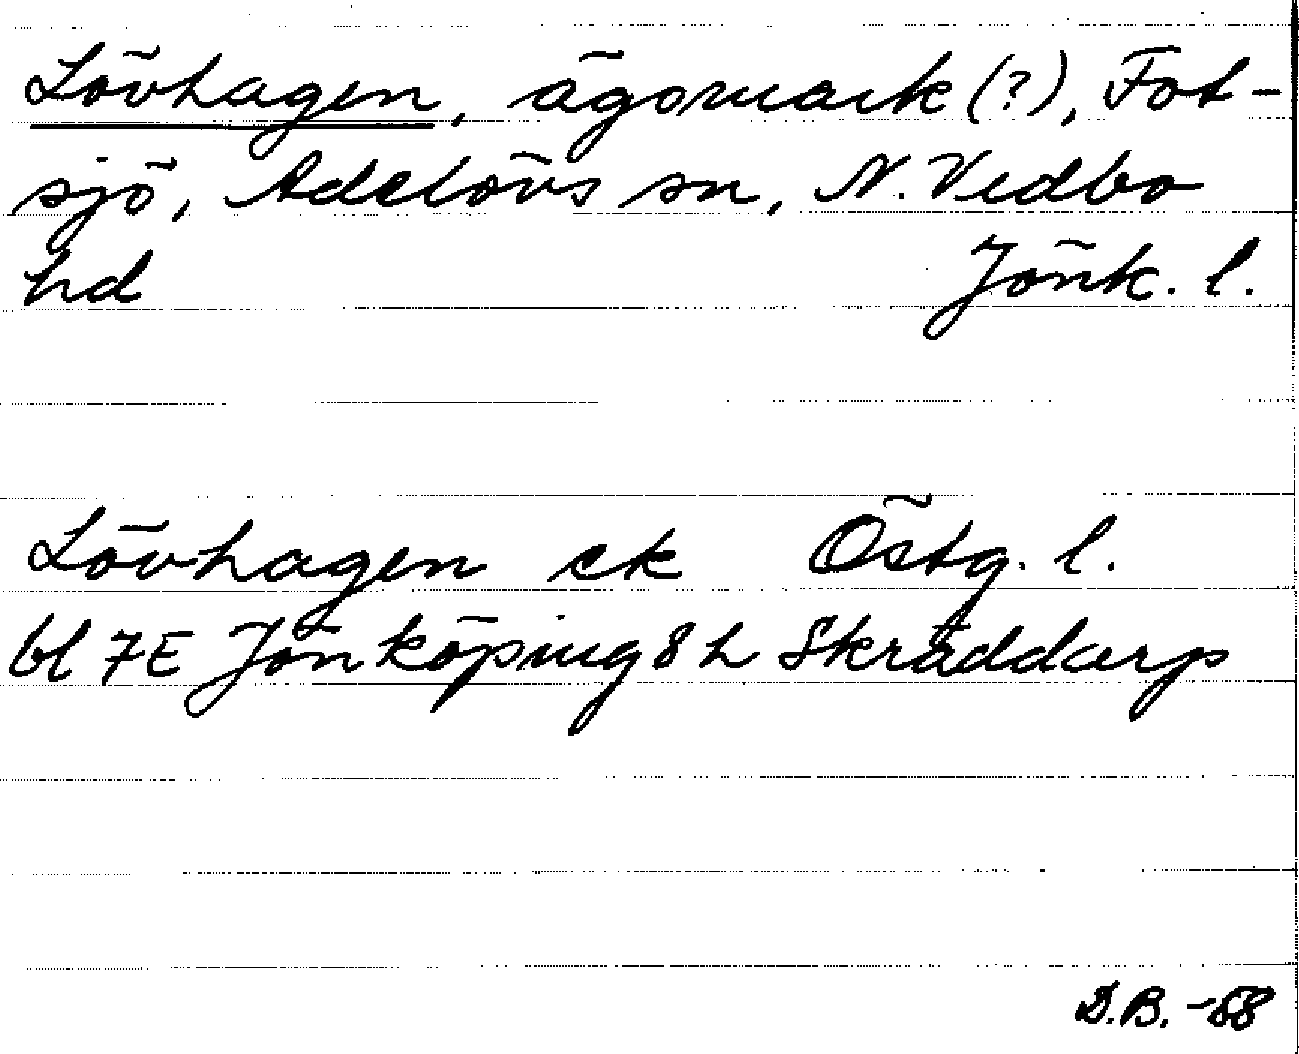 Lövhagen, ägomark (?), Fot-
sjö, Adelövs sn, N. Vedbo
hd Jönk. l.
Lövhagen ek Östg. l.
bl 7E Jönköping 8 h Skräddarp
D.B. -68